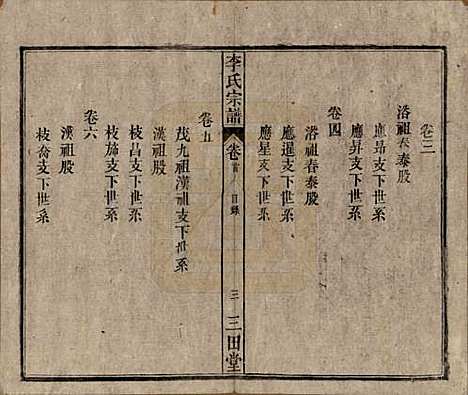 卷三
洛祖春泰股
應昂支下世系
應昇支下世系
卷四
洛祖春泰股
應暹支下世系
應星支下世系
李氏宗譜
卷首
目錄
三田堂
卷五
茂九祖漢祖支下世系
漢祖股
枝昌支下世系
枝旆支下世系
卷六
漢祖股
枝喬支下世系